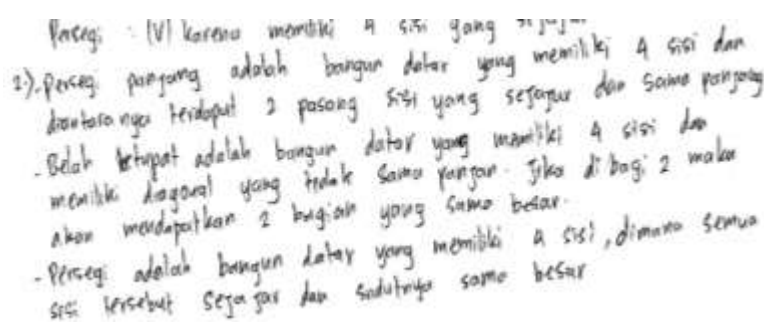 Persegi : (V) karena memiliki 4 sisi yang sejajar
2.). Persegi panjang adalah bangun datar yang memiliki 4 sisi dan
diantaranya terdapat 2 pasang sisi yang sejajar dan sama panjang
- Belah ketupat adalah bangun datar yang memiliki 4 sisi dan
memiliki diagonal yang tidak sama panjan. Jika di bagi 2 maka
akan mendapatkan 2 bagian yang sama besar.
- Persegi adalah bangun datar yang memiliki 4 sisi, dimana semua
sisi tersebut sejajar dan sudutnya sama besar